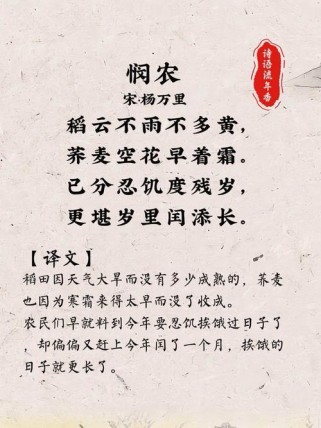 悯农
诗语流年香
宋·杨万里
稻云不雨不多黄，
荞麦空花早着霜。
已分忍饥度残岁，
更堪岁里闰添长。
【译文】
稻田因天气大旱而没有多少成熟的，荞麦
也因为寒霜来得太早而没了收成。
农民们早就料到今年要忍饥挨饿过日子了
，却偏偏又赶上今年闰了一个月，挨饿的
日子就更长了。